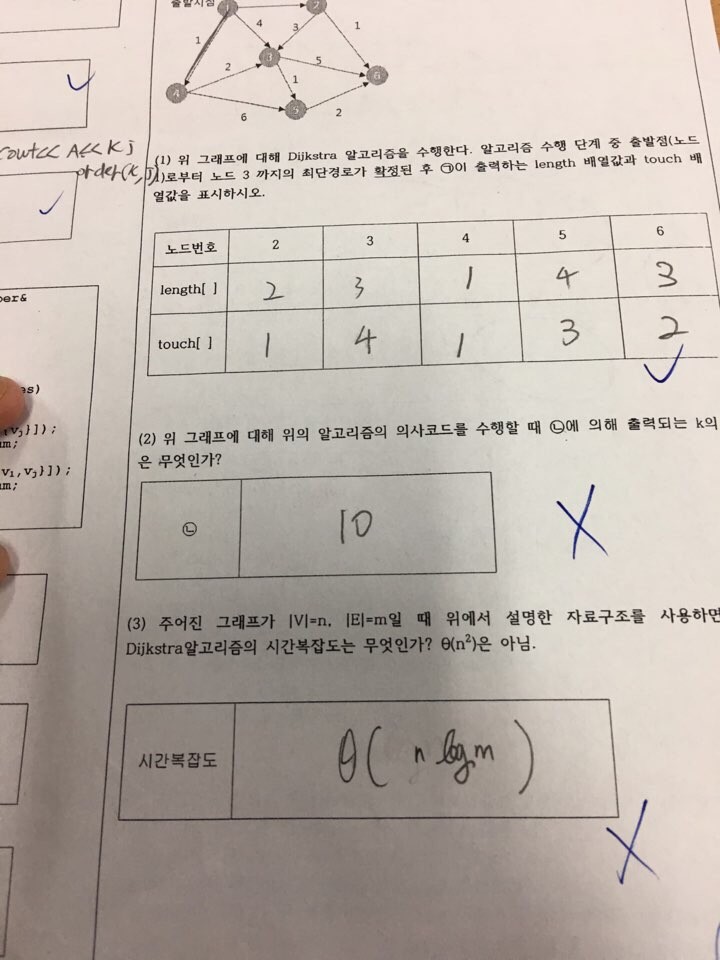 출발지점
1 2
4 3 1
1
3
2 5 6
4 1
6 5 2
cout<< A<< K;
order(K, J)
(1) 위 그래프에 대해 Dijkstra 알고리즘을 수행한다. 알고리즘 수행 단계 중 출발점(노드
1)로부터 노드 3 까지의 최단경로가 확정된 후 ㉠이 출력하는 length 배열값과 touch 배
열값을 표시하시오.
노드번호 2 3 4 5 6
length[ ] 2 3 1 4 3
touch[ ] 1 4 1 3 2
ber&
es)
,vj}]);
um;
vi,vj}]);
um;
(2) 위 그래프에 대해 위의 알고리즘의 의사코드를 수행할 때 ㉡에 의해 출력되는 k의
은 무엇인가?
㉡ 10
(3) 주어진 그래프가 |V|=n, |E|=m일 때 위에서 설명한 자료구조를 사용하면
Dijkstra알고리즘의 시간복잡도는 무엇인가? θ(n²)은 아님.
시간복잡도 θ( n log m )